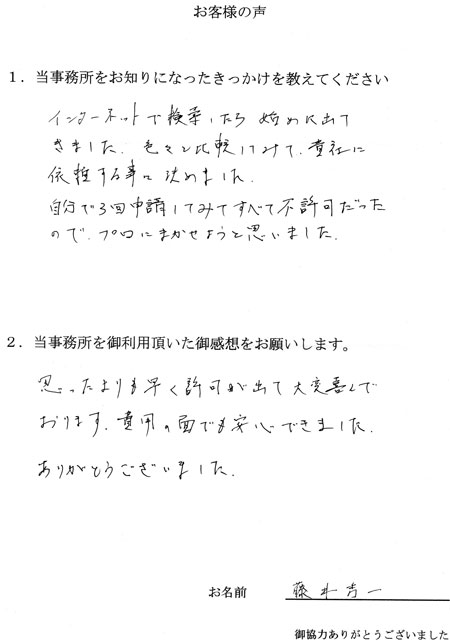 お客様の声
1．当事務所をお知りになったきっかけを教えてください
インターネットで検索したら 始めに出て
きました．色々と比較してみて．貴社に
依頼する事に決めました．
自分で3回申請してみてすべて不許可だった
ので．プロにまかせようと思いました．
2．当事務所を御利用頂いた御感想をお願いします。
思ったよりも早く許可が出て大変喜んで
おります．費用の面でも安心できました．
ありがとうございました．
お名前 藤井 一
御協力ありがとうございました